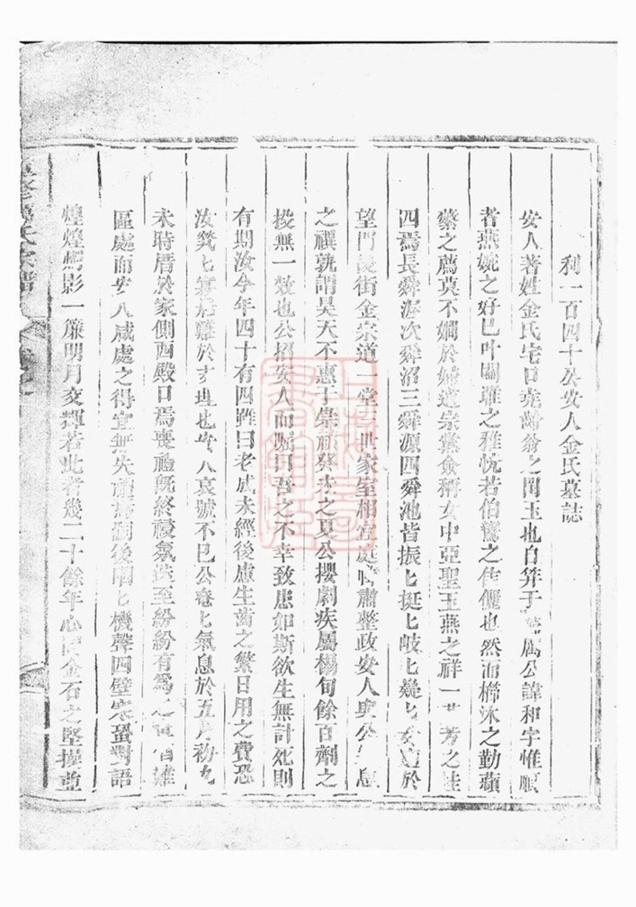 利一百四十公安人金氏墓誌
安人著姓金氏宅口堯齡翁之閨玉也自笄于屬公諱和字惟順
者燕婉之好已叶關雎之雅恍若伯鸞之伉儷也然而櫛沐之勤蘋
蘩之薦莫不嫻於婦道宗黨僉稱女中亞聖玉燕之祥一芳之桂
四焉長舜海次舜沼三舜源四舜池皆振匕挺匕岐匕嶷匕於
望門後街金宗道一堂三世家室相宜庭肅整政安人與公息
之禩孰謂昊天不惠于崇禎癸未之夏公攖劇疾屬楊旬餘百劑之
投無一效也公招安人而囑曰吾之不幸致患如斯欲生無計死則
有期汝今年四十有四雖曰老成未經後慮生齒之繁日用之費恐
汝煢匕無難於支理也安人哀號不已公奄匕氣息於五月初九
未時厝於家側西殿口焉喪禮既終祲氛迭至紛紛有為之雖
區處而安人咸處之得宜無失嗣後唧匕機聲四壁寒蛩對語
煌煌影一簾明月交輝若此者幾二十餘年心同金石之堅操並
氏宗譜